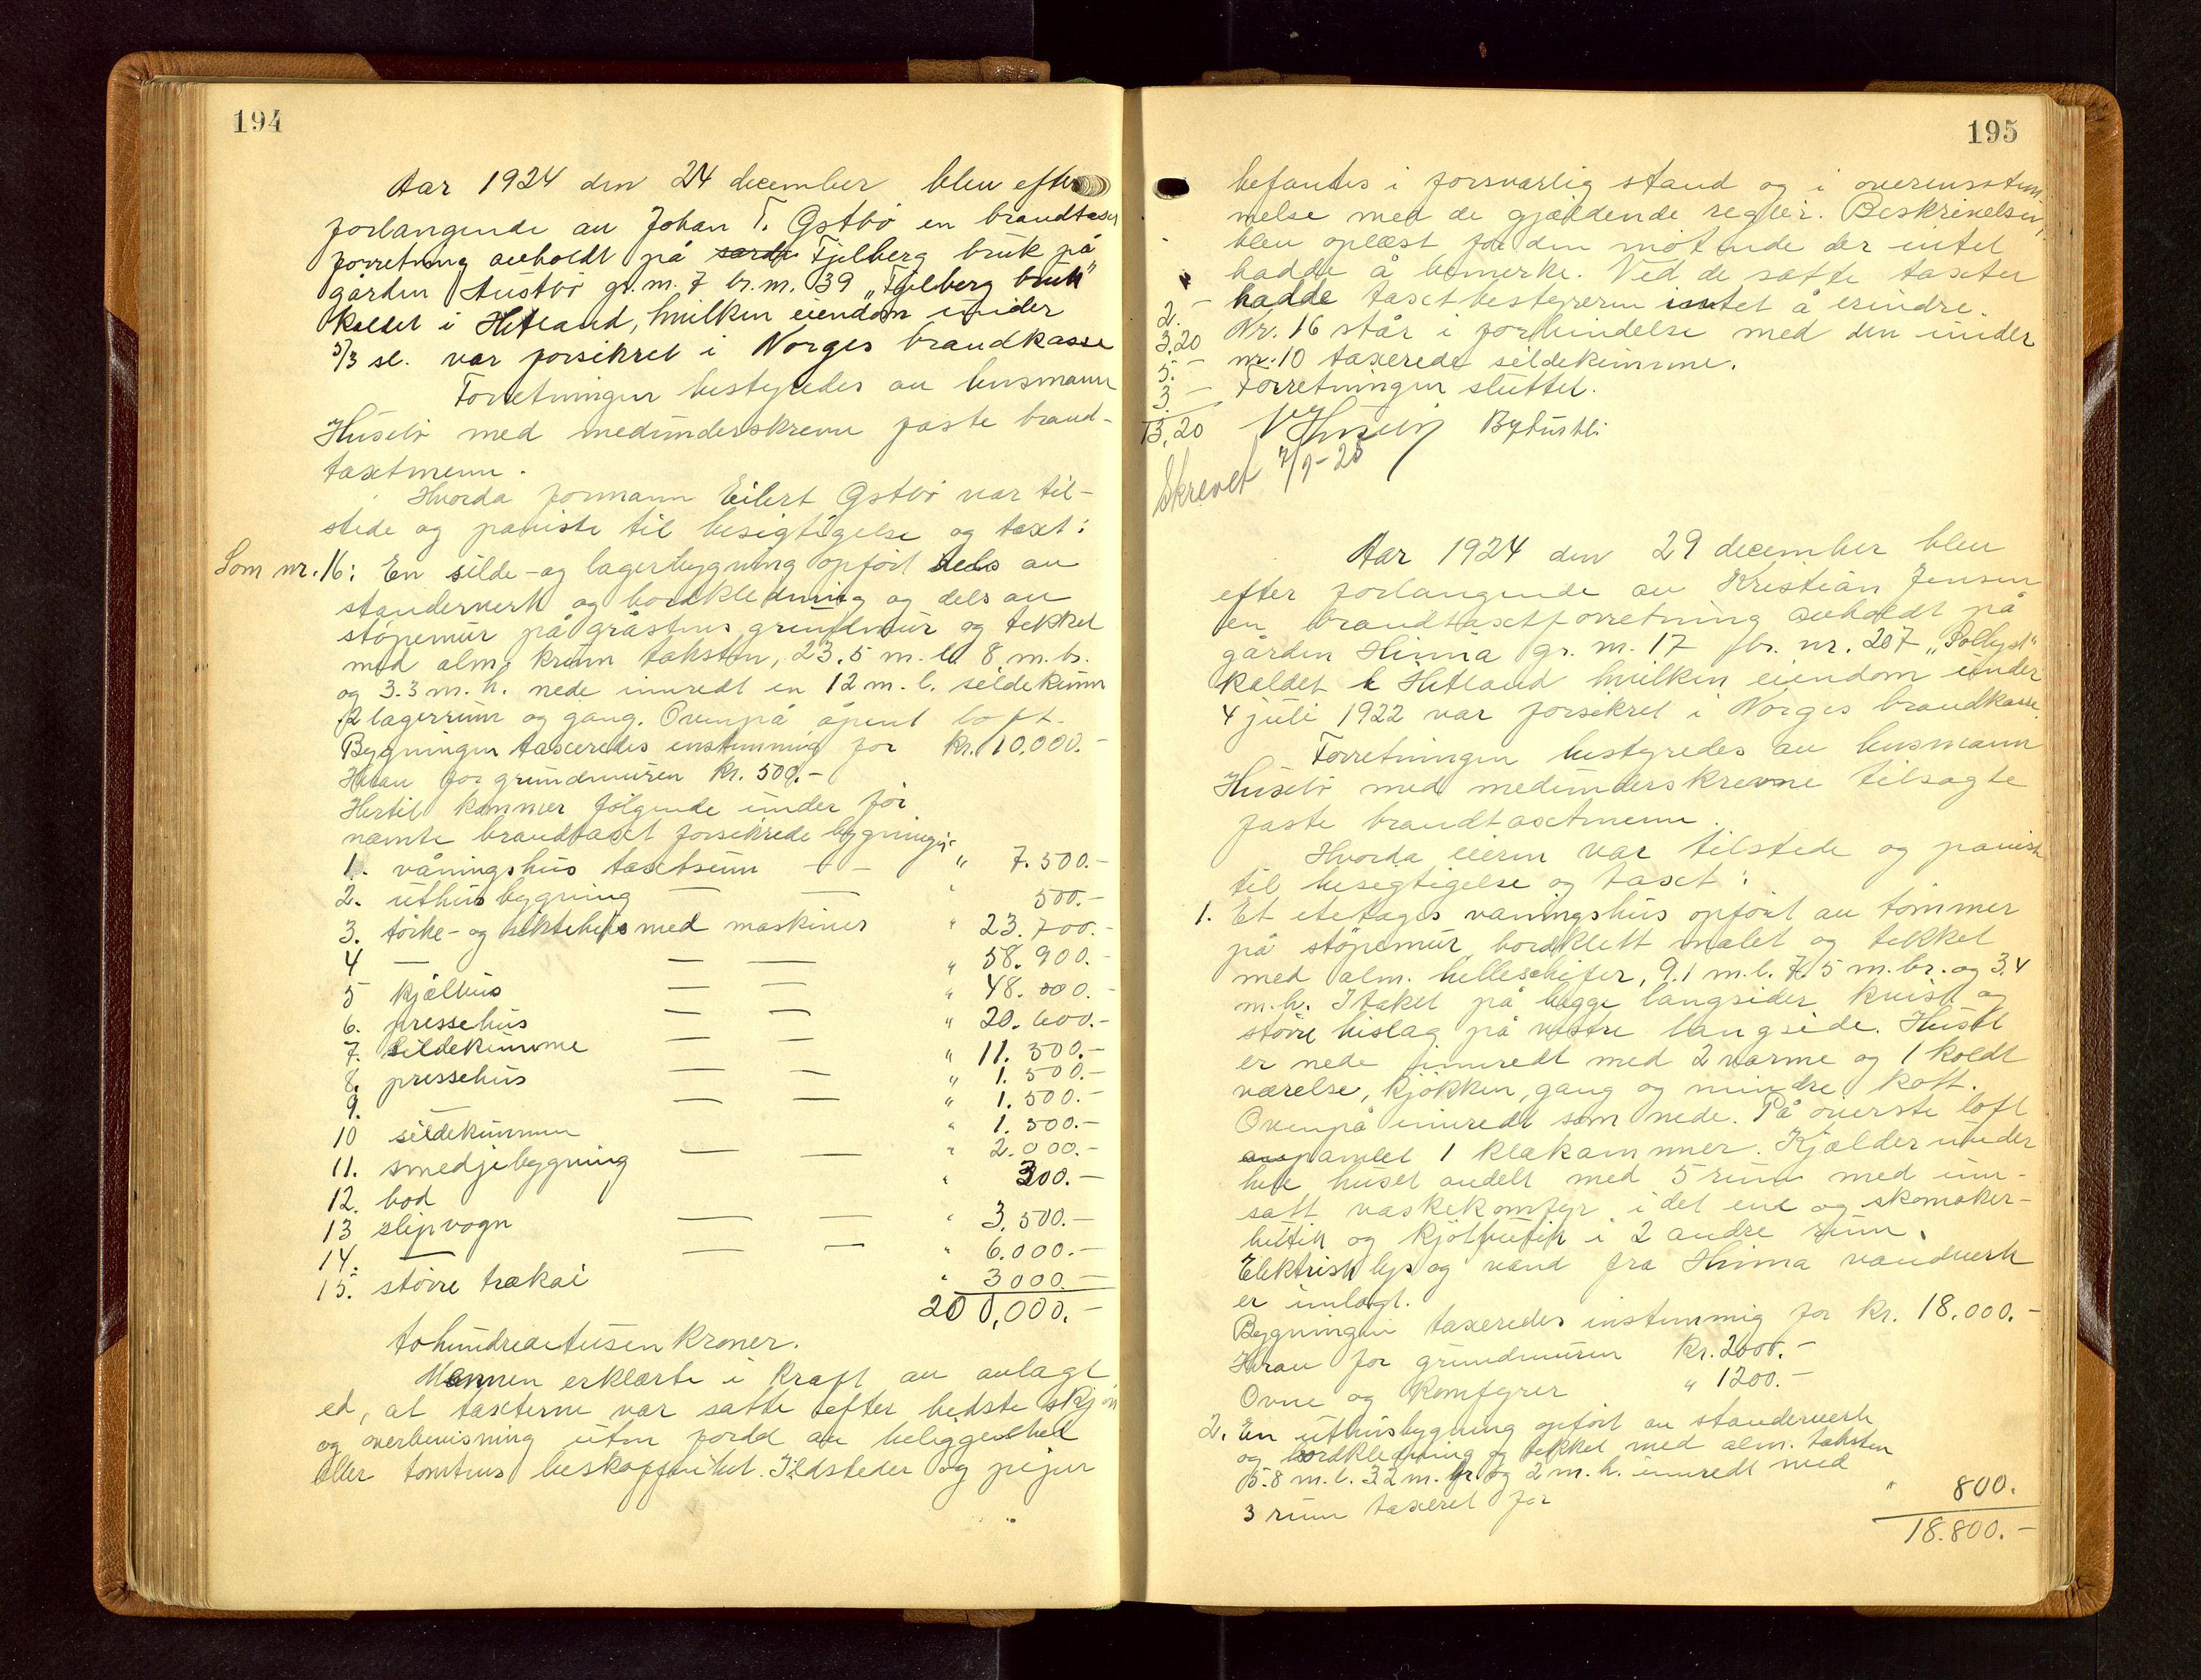 194
Aar 1924 den 24 december blev efter
forlangende av Johan T. Østbø en brandtaxt
forretning avholdt på Fjelberg bruk på
gården Austbø gr. nr. 7 br. nr. 39 „Fjelberg bruk"
kaldet i Hetland, hvilken eiendom under
5/3 sl. var forsikret i Norges brandkasse
Forretningen bestyredes av lensmann
Husebø med medunderskrevne faste brand-
taxtmenn.
Hvorda formann Eilert Østbø var til-
stede og paaviste til besigtigelse og taxt:
Som nr. 16: En silde- og lagerbygning opført dels av
standerverk og bordkledning og dels av
støpemur på gråstens grundmur og tekket
med alm. krum taksten, 23.5 m. l. 8 m. br.
og 3.3 m. h. nede innredt en 12 m. l. sildekum
2 lagerrum og gang. Ovenpå åpent loft.
Bygningen taxeredes enstemmig for kr. 10.000.-
Herav for grundmuren kr. 500.-
Hertil kommer følgende under før
nævnte brandtaxt forsikrede bygninger
1. våningshus taxtsum — — " 7.500.-
2. uthusbygning — — " 500.-
3. tørke- og siktehus med maskiner " 23.700.-
4 — — — " 58.900.-
5 kjelhus — — " 48.000.-
6. pressehus — — " 20.600.-
7. Sildekumme — — " 11.500.-
8. pressehus — — " 1.500.-
9. — — — " 1.500.-
10 sildekummen " 1.500.-
11. smedjebygning — — " 2.000.-
12. bod " 300.-
13 slipvogn — — " 3.500.-
14. — — — " 6.000.-
15. større trækai " 3000.-
200,000.-
tohundredetusen kroner.
Mennen erklærte i kraft av avlagt
ed, at taxterne var satte efter bedste skjøn
og overbevisning uten fordel av beliggenhet
eller tomtens beskaffenhet. Ildsteder og piper
195
befantes i forsvarlig stand og i overensstem-
melse med de gjældende regler. Beskrivelsen
blev oplæst for den møtende der intet
hadde å bemerke. Ved de satte taxter
hadde taxtbestyreren intet å erindre.
Nr. 16 står i forbindelse med den under
nr. 10 taxerede sildekumme.
Forretningen sluttet.
2.-
3.20
5.-
3.-
13,20
Skrevet 7/1-25
Aar 1924 den 29 december blev
efter forlangende av Kristian Jensen
en brandtaxtforretning avholdt på
gården Hinna gr. nr. 17 br. nr. 207 „Solbyst"
kaldet i Hetland hvilken eiendom under
4 juli 1922 var forsikret i Norges brandkasse.
Forretningen bestyredes av lensmann
Husebø med medunderskrevne tilsagte
faste brandtaxtmenn.
Hvorda eieren var tilstede og paaviste
til besegtigelse og taxt:
1. Et etetages våningshus opført av tømmer
på støpemur bordklett malet og tekket
med alm. helleskifer, 9.1 m. l. 7.5 m. br. og 3.4
m. h. I taket på begge langsider kvist og
større bislag på vestre langside. Huset
er nede innredt med 2 varme og 1 koldt
værelse, kjøkken, gang og mindre kott.
Ovenpå innredt som nede. På øverste loft
panlet 1 klækammer. Kjælder under
hele huset avdelt med 5 rum med inn-
satt vaskekomfyr i det ene og skomaker-
butikk og kjøtbutikk i 2 andre rum.
Elektrisk lys og vand fra Hinna vandverk
er innlagt.
Bygningen taxeredes enstemmig for kr. 18.000.-
Herav for grundmuren kr. 2000.-
Ovne og komfyrer " 1200.-
2. En uthusbygning opført av standerverk
og bordkledning og tekket med alm. taksten
5.8 m. l. 3.2 m. br. og 2 m. h. innredt med
3 rum taxeret for " 800.
18.800.-